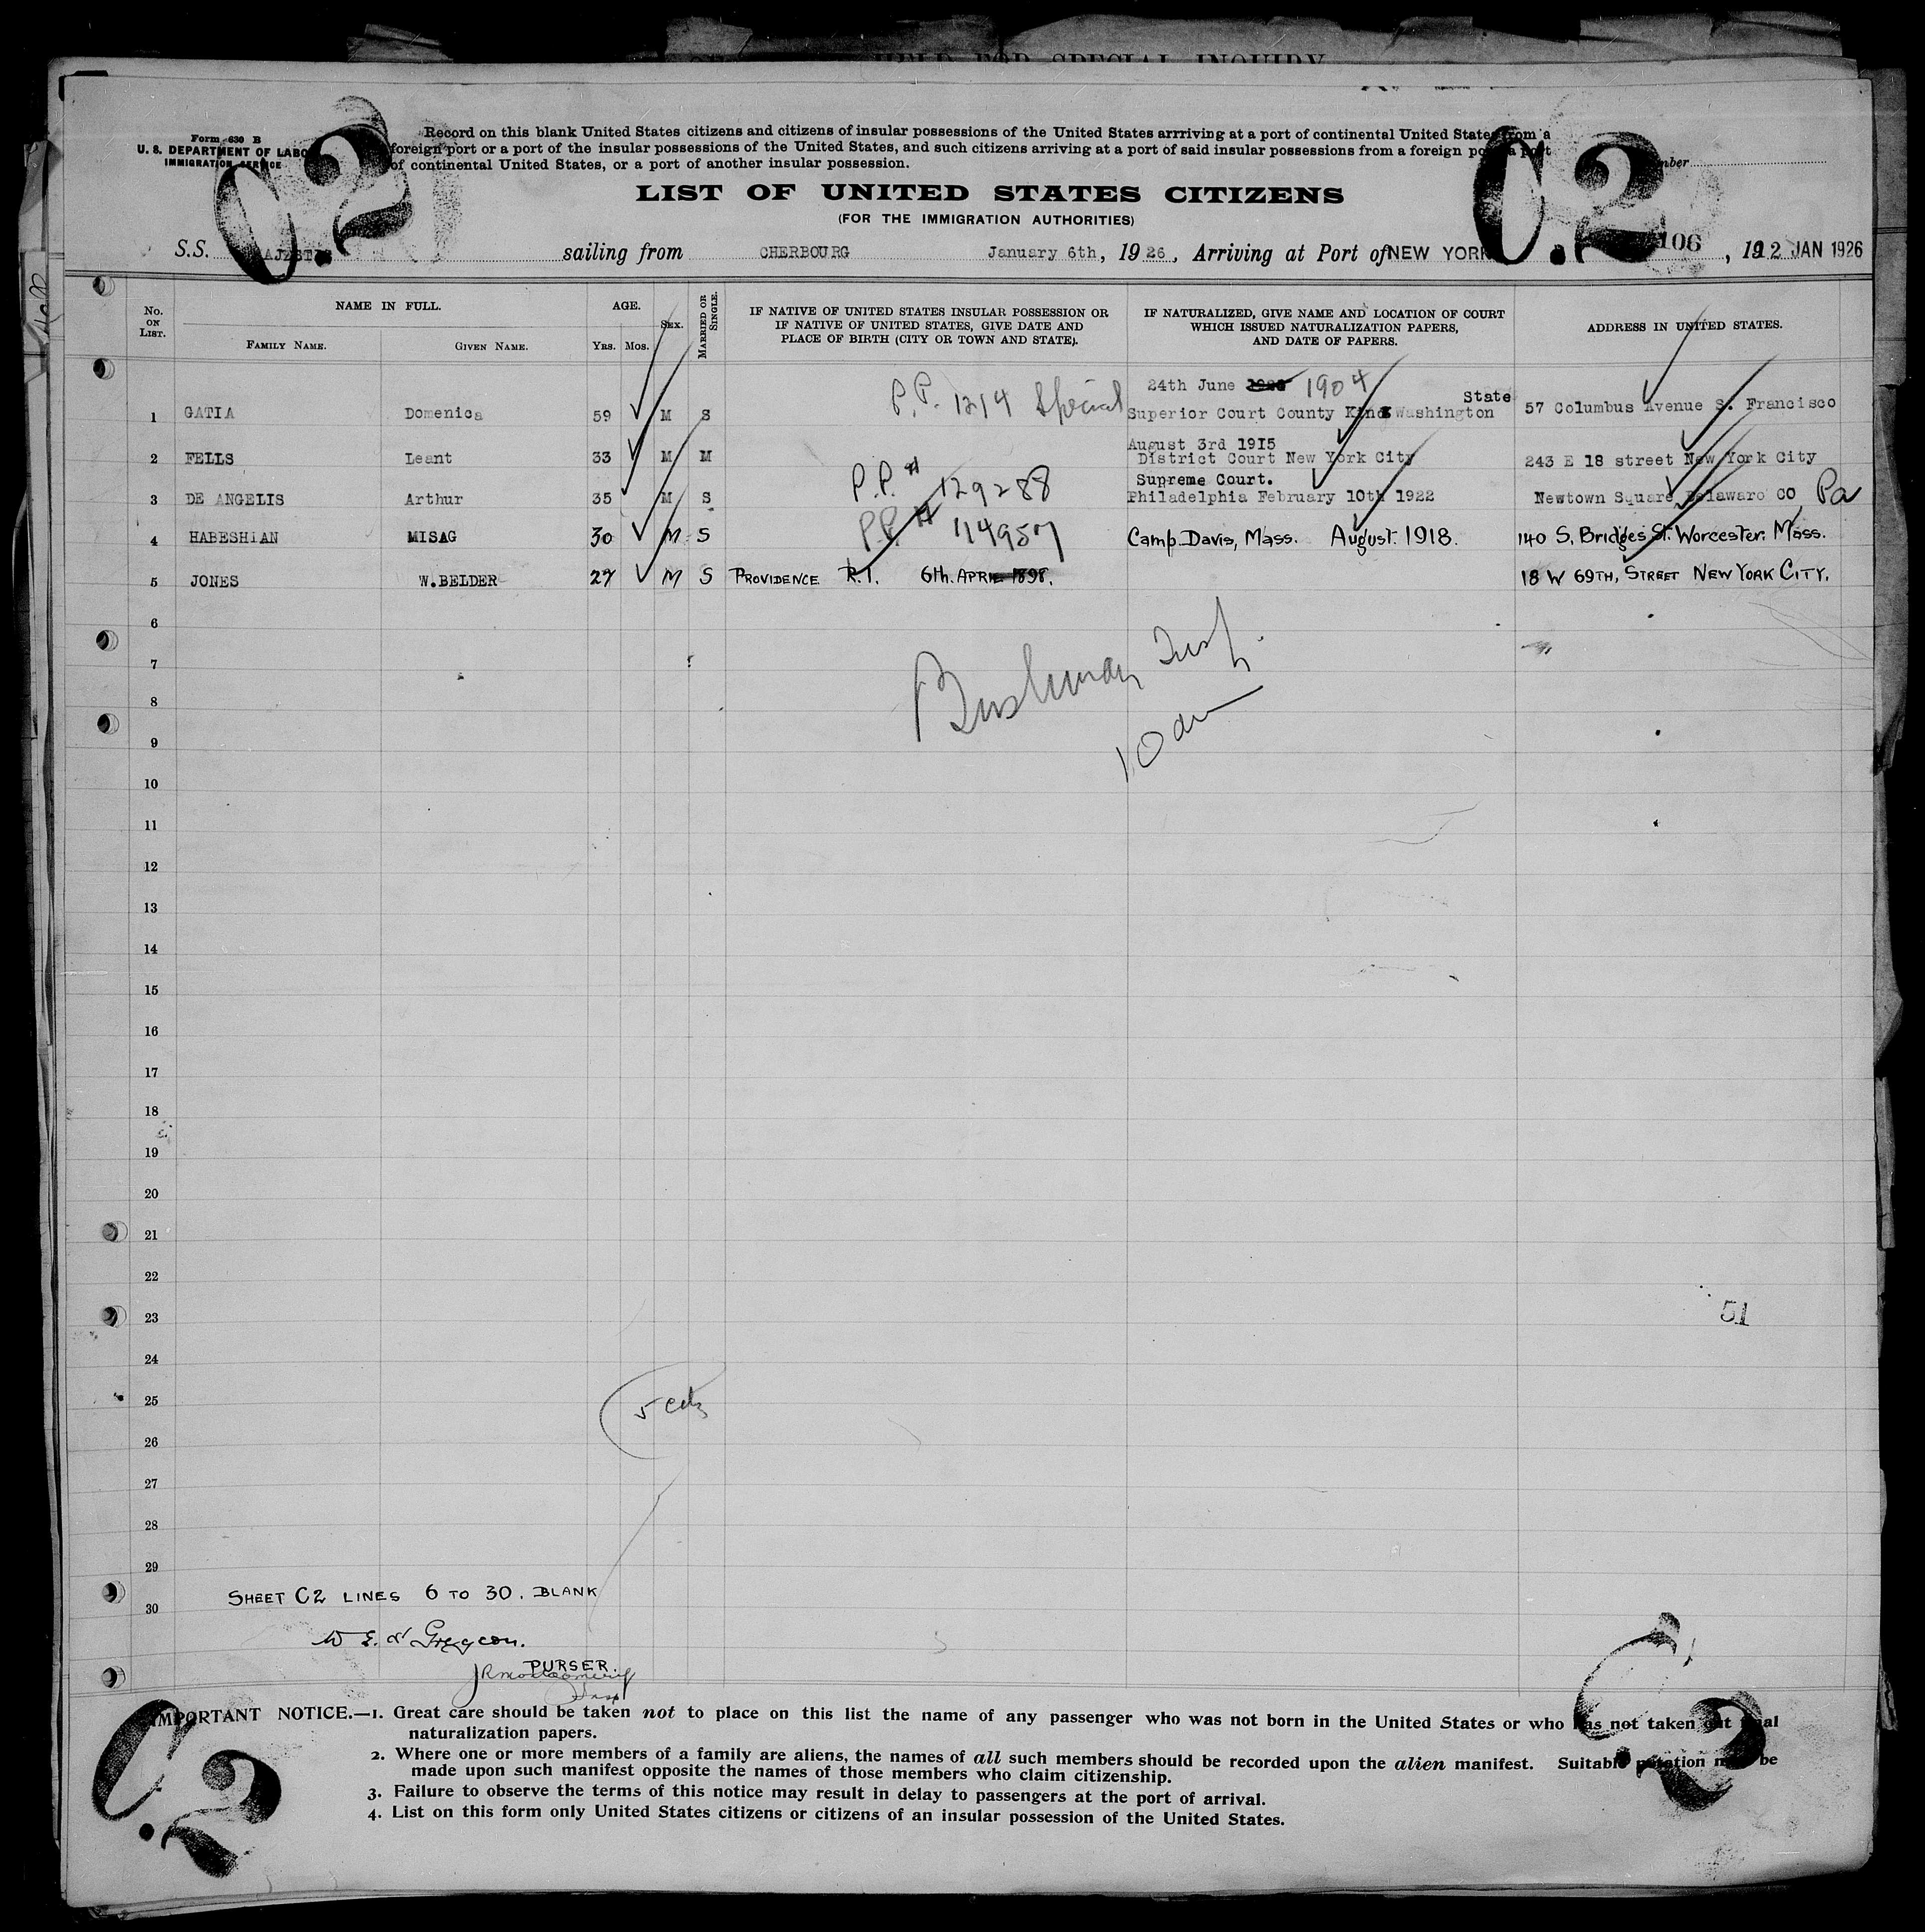 HELD FOR SPECIAL INQUIRY
Form 630 B
U. S. DEPARTMENT OF LABO
IMMIGRATION SERVICE
C.2
C.2
Record on this blank United States citizens and citizens of insular possessions of the United States arrriving at a port of continental United States from a
foreign port or a port of the insular possessions of the United States, and such citizens arriving at a port of said insular possessions from a foreign po a port
of continental United States, or a port of another insular possession.
LIST OF UNITED STATES CITIZENS
(FOR THE IMMIGRATION AUTHORITIES)
S.S. AJESTIC sailing from CHERBOURG January 6th, 1926, Arriving at Port of NEW YORK 106, 19 12 JAN 1926
No. ON LIST. NAME IN FULL. FAMILY NAME. GIVEN NAME. AGE. YRS. MOS. SEX. MARRIED OR SINGLE. IF NATIVE OF UNITED STATES INSULAR POSSESSION OR IF NATIVE OF UNITED STATES, GIVE DATE AND PLACE OF BIRTH (CITY OR TOWN AND STATE). IF NATURALIZED, GIVE NAME AND LOCATION OF COURT WHICH ISSUED NATURALIZATION PAPERS, AND DATE OF PAPERS. ADDRESS IN UNITED STATES.
24th June 1904
1 GATIA Domenica 59 M S P.P. 1214 Special Superior Court County King Washington State 57 Columbus Avenue S. Francisco
August 3rd 1915
2 FELLS Leant 33 M M District Court New York City 243 E 18 street New York City
Supreme Court.
3 DE ANGELIS Arthur 35 M S P.P. # 129288 Philadelphia February 10th 1922 Newtown Square Delaware CO Pa
4 HABESHIAN MISAG 30 M S P.P. # 114957 Camp Davis, Mass. August. 1918. 140 S. Bridges St. Worcester. Mass.
5 JONES W. BELDER 27 M S PROVIDENCE R.I. 6th. APRIL 1898. 18 W 69TH, STREET NEW YORK CITY.
6
7
8
9
10
10 am
11
12
13
14
15
16
17
18
19
20
21
22
23
51
24
25
5
26
27
28
29
30
SHEET C2 LINES 6 TO 30. BLANK
PURSER.
IMPORTANT NOTICE.—1. Great care should be taken not to place on this list the name of any passenger who was not born in the United States or who has not taken out final
naturalization papers.
2. Where one or more members of a family are aliens, the names of all such members should be recorded upon the alien manifest. Suitable notation may be
made upon such manifest opposite the names of those members who claim citizenship.
3. Failure to observe the terms of this notice may result in delay to passengers at the port of arrival.
4. List on this form only United States citizens or citizens of an insular possession of the United States.
C.2
C.2